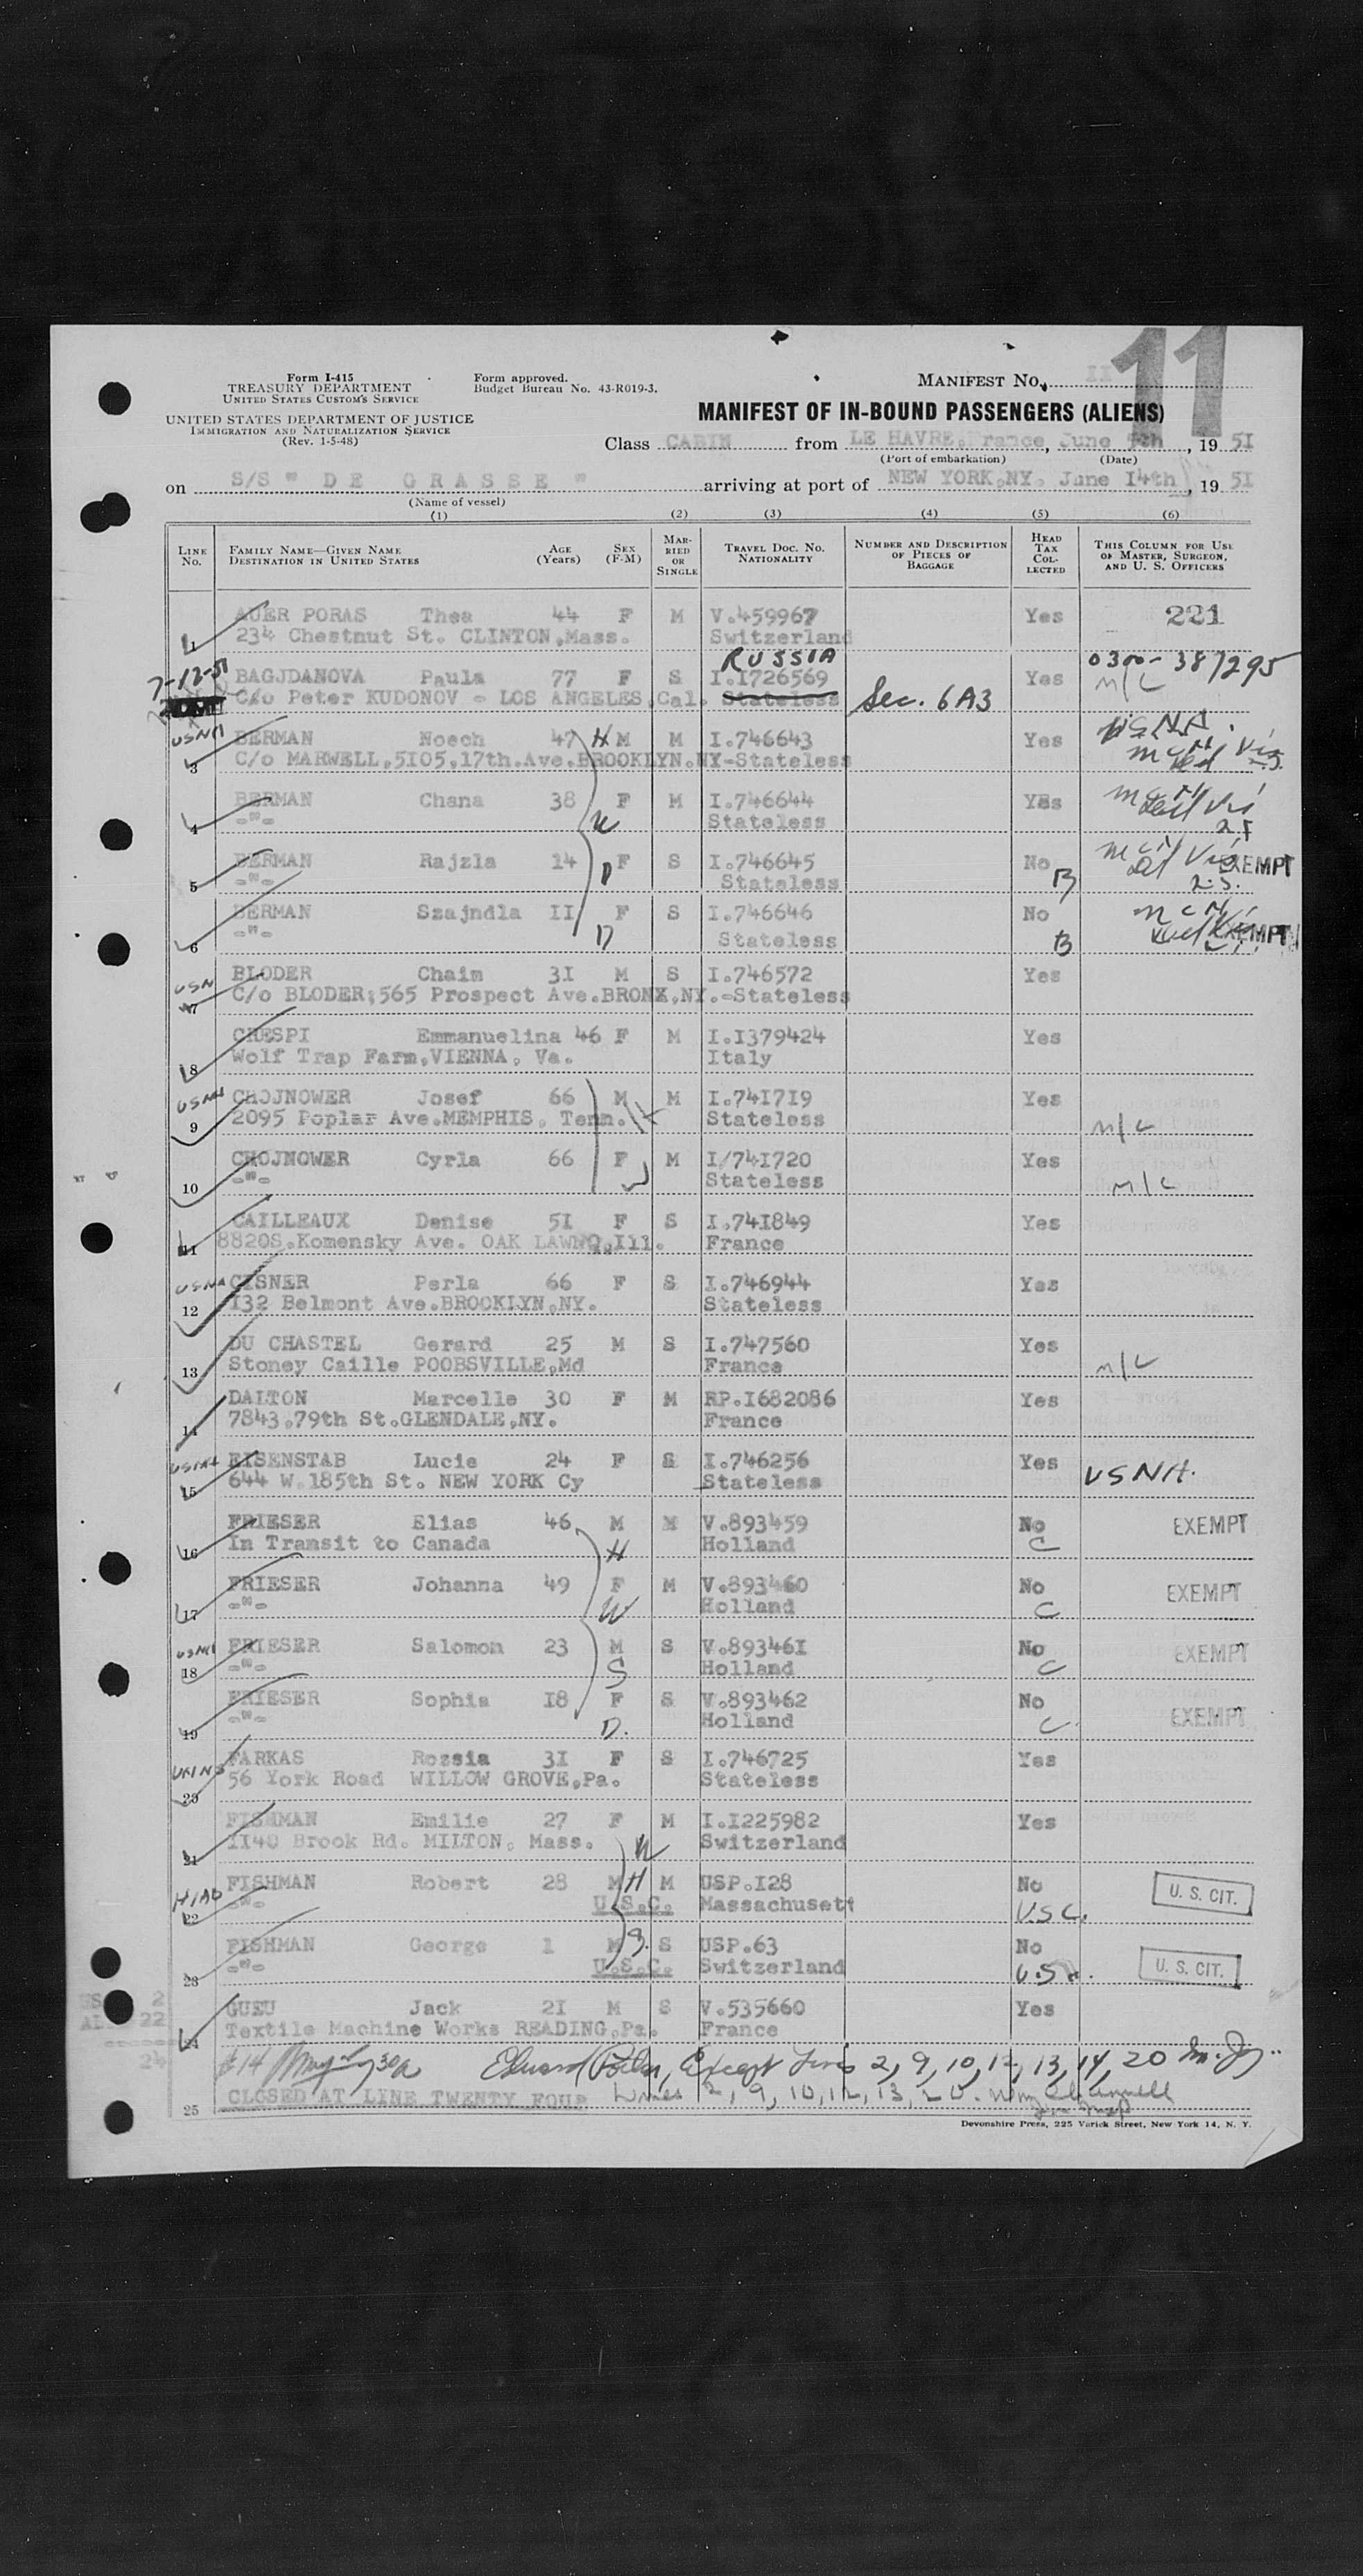 11
Form I-415
TREASURY DEPARTMENT
UNITED STATES CUSTOM'S SERVICE
Form approved.
Budget Bureau No. 43-R019-3.
MANIFEST No. II
UNITED STATES DEPARTMENT OF JUSTICE
IMMIGRATION AND NATURALIZATION SERVICE
(Rev. 1-5-48)
MANIFEST OF IN-BOUND PASSENGERS (ALIENS)
Class CABIN from LE HAVRE, France, June 5th, 19 51
(Port of embarkation) (Date)
on S/S " DE GRASSE " arriving at port of NEW YORK,NY. June I4th, 19 51
(Name of vessel)
(1) (2) (3) (4) (5) (6)
LINE No. FAMILY NAME—GIVEN NAME DESTINATION IN UNITED STATES AGE (Years) SEX (F-M) MARRIED OR SINGLE TRAVEL DOC. No. NATIONALITY NUMBER AND DESCRIPTION OF PIECES OF BAGGAGE HEAD TAX COLLECTED THIS COLUMN FOR USE OF MASTER, SURGEON, AND U. S. OFFICERS
AUER PORAS Thea 44 F M V.459967 Yes 221
1 234 Chestnut St. CLINTON,Mass. Switzerland
RUSSIA
7-12-51 BAGJDANOVA Paula 77 F S I.I726569 Yes 0300-387295
C/o Peter KUDONOV - LOS ANGELES,Cal. Stateless Sec. 6A3 M/C
USNA BERMAN Noech 47 H M M I.746643 Yes USNA.
3 C/o MARWELL,5I05,17th.Ave.BROOKLYN.NY-Stateless
BERMAN Chana 38 F M I.746644 Yes
4 -"- W Stateless
BERMAN Rajzla I4 F S I.746645 No EXEMPT
5 -"- D Stateless B
BERMAN Szajndla II F S I.746646 No
6 -"- D Stateless B EXEMPT
USN BLODER Chaim 3I M S I.746572 Yes
7 C/o BLODER;565 Prospect Ave.BRONX,NY.-Stateless
CRESPI Emmanuelina 46 F M I.I379424 Yes
8 Wolf Trap Farm,VIENNA, Va. Italy
USNA CHOJNOWER Josef 66 M M I.74I7I9 Yes
9 2095 Poplar Ave.MEMPHIS, Tenn. H Stateless M/C
CHOJNOWER Cyrla 66 F M I/74I720 Yes
10 -"- W Stateless M/C
CAILLEAUX Denise 5I F S I.74I849 Yes
11 8820S.Komensky Ave. OAK LAWN,Ill. France
USNA CISNER Perla 66 F S I.746944 Yes
12 I32 Belmont Ave.BROOKLYN,NY. Stateless
DU CHASTEL Gerard 25 M S I.747560 Yes
13 Stoney Caille POOBSVILLE,Md France M/C
DALTON Marcelle 30 F M RP.I682086 Yes
14 7843,79th St.GLENDALE,NY. France
USNA EISENSTAB Lucie 24 F S I.746256 Yes
15 644 W.185th St. NEW YORK Cy Stateless USNA.
FRIESER Elias 46 M M V.893459 No EXEMPT
16 In Transit to Canada H Holland C
FRIESER Johanna 49 F M V.893460 No EXEMPT
17 -"- W Holland C
USNA FRIESER Salomon 23 M S V.89346I No EXEMPT
18 -"- S Holland C
FRIESER Sophia I8 F S V.893462 No EXEMPT
19 -"- D. Holland C
FARKAS Rozsia 3I F S I.746725 Yes
20 56 York Road WILLOW GROVE,Pa. Stateless
FISHMAN Emilie 27 F M I.I225982 Yes
21 II40 Brook Rd. MILTON, Mass. W Switzerland
FISHMAN Robert 28 M H M USP.I28 No U. S. CIT.
22 -"- U.S.C. Massachusett U.S.C.
FISHMAN George 1 M S. S USP.63 No
23 -"- U.S.C. Switzerland U.S.C. U. S. CIT.
US 2
GUEU Jack 2I M S V.535660 Yes
AL 22
24 Textile Machine Works READING,Pa. France
24
#14 Except Lines 2, 9, 10, 12, 13, 14, 20
25 CLOSED AT LINE TWENTY FOUR Lines 2, 9, 10, 12, 13, 20.
Devonshire Press, 225 Varick Street, New York 14, N. Y.